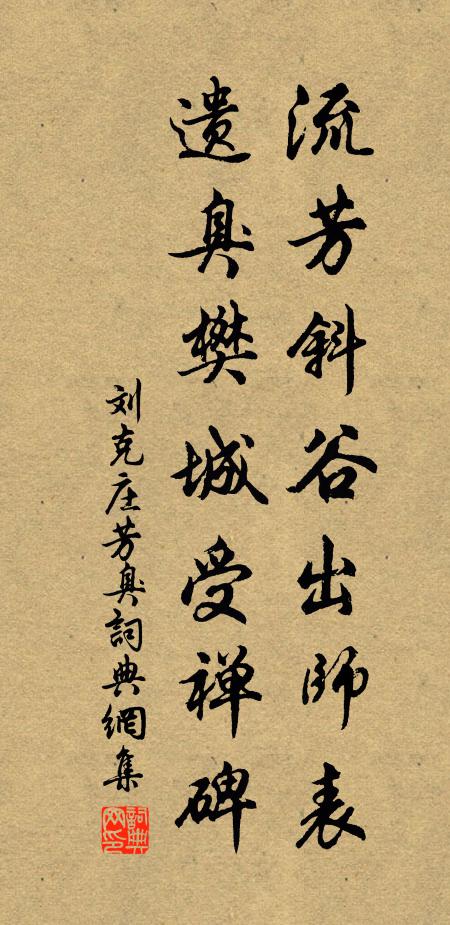 流芳斜谷出師表
遗臭樊城受禅碑
刘克庄芳臭詞典網集
詞典网印